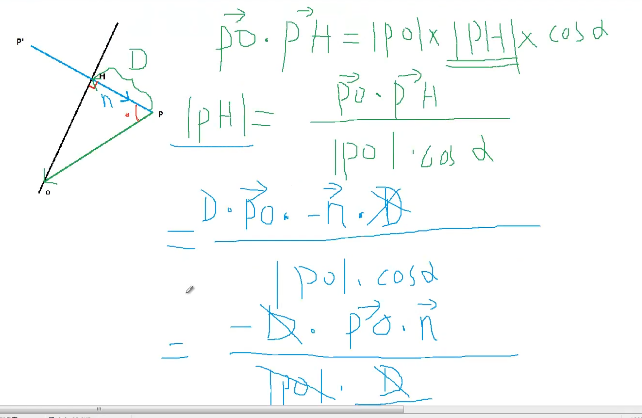 P'
D
H
n
α
P
O
→PO · →PH = |PO| × |PH| × cos α
|PH| = →PO · →PH
|PO| · cos α
= D · →PO · -→n · D
|PO| · cos α
= - D · →PO · →n
|PO| · D